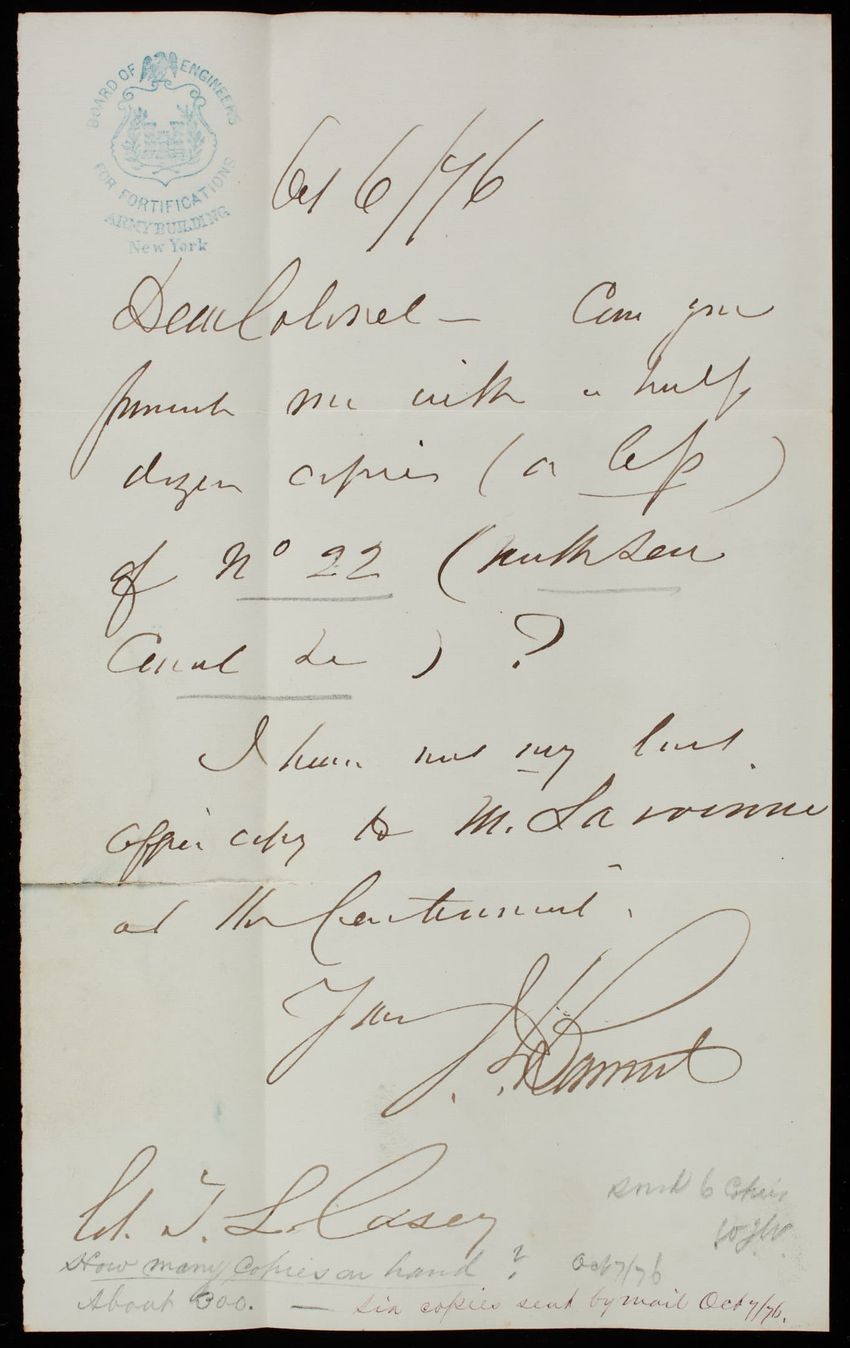 BOARD OF ENGINEERS
FOR FORTIFICATIONS
ARMY BUILDING
New York
Oct 6/76
Dear Colonel — Can you
furnish me with a half
dozen copies (or less)
of No 22 (North Sea
Canal &c) ?
I have sent my last
office copy to M. Lavoinne
at the Centennial.
Yours
J. G. Barnard
Col. T. L. Casey
Send 6 copies
How many copies on hand ? Oct 7/76
About 300. — Six copies sent by mail Oct 7/76.